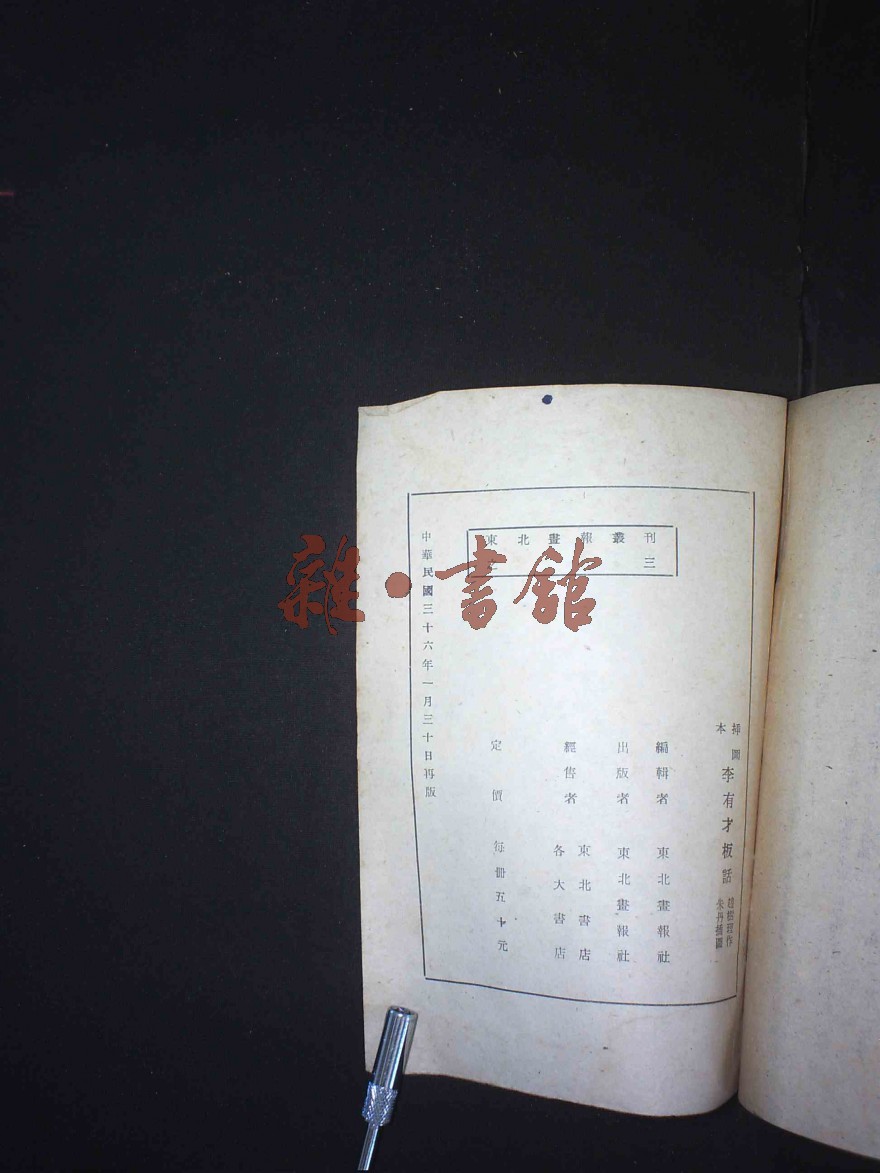 東北畫報叢刊
三
插圖
本
李有才板話
趙樹理作
朱丹插圖
編輯者 東北畫報社
出版者 東北畫報社
經售者 東北書店
各大書店
定價 每冊五十元
中華民國三十六年一月三十日再版
雜·書館